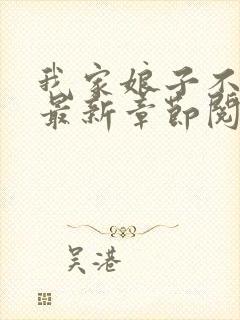 我家娘子不
最新章节阅
吴港